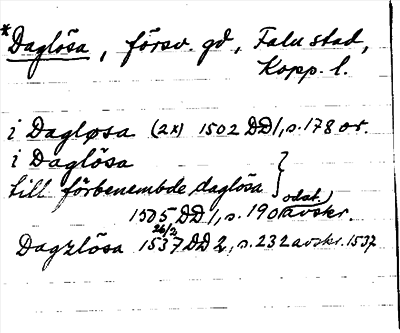 *Daglösa, försv. gd, Falu stad,
Kopp. l.
i Dagløsa (2x) 1502 DD1, s. 178 or.
i Daglösa
till förbenembde daglösa } odat.
1505 DD1, s. 190 avskr.
Dagzlösa 1537 26/2 DD2, s. 232 avskr. 1537